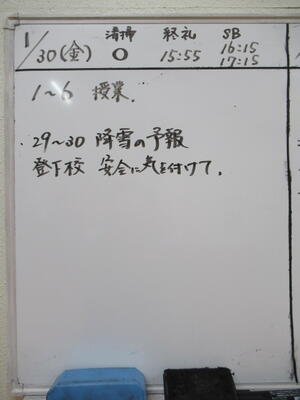 1/30(金) 清掃 ○ 終礼 15:55 SB 16:15 17:15
1~6 授業.
29~30 降雪の予報
登下校 安全に気を付けて.